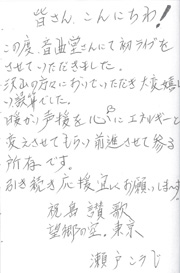 皆さん、こんにちわ!
この度、音曲堂さんにて初ライブを
させていただきました。
沢山の方々においでいただき大変嬉し
い
暖かい声援を心にエネルギーと
変えさせてもらい前進させて参る
所存です。
引き続き応援宜しくお願いします。
祝島讃歌
望郷の空、東京
瀬戸こうじ